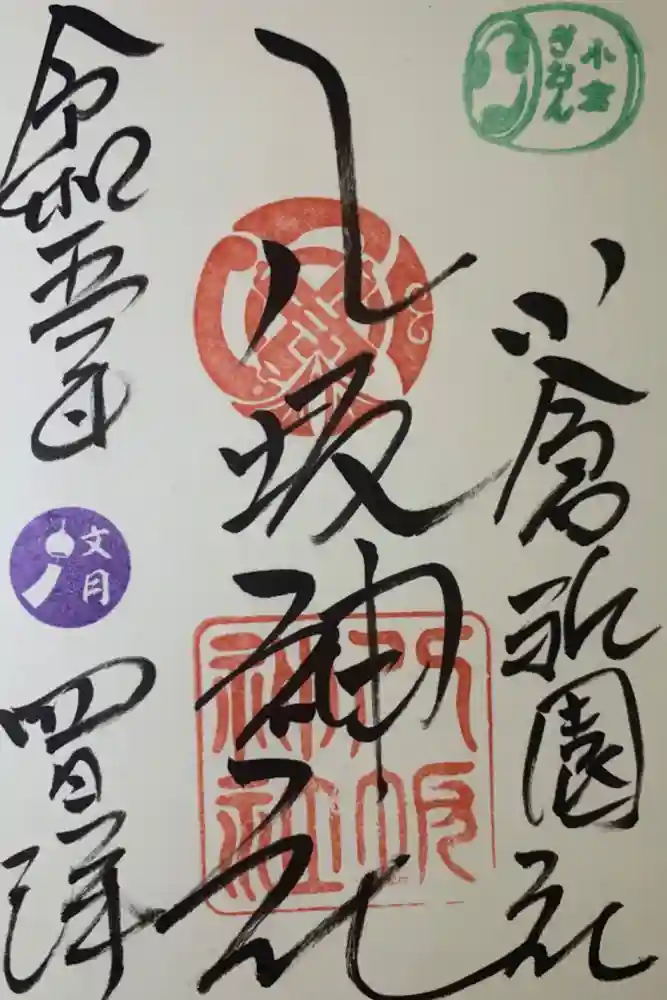 小倉
ぎおん
小倉祇園社
八坂神社
八坂
神社
令和五年
文月
四日拝